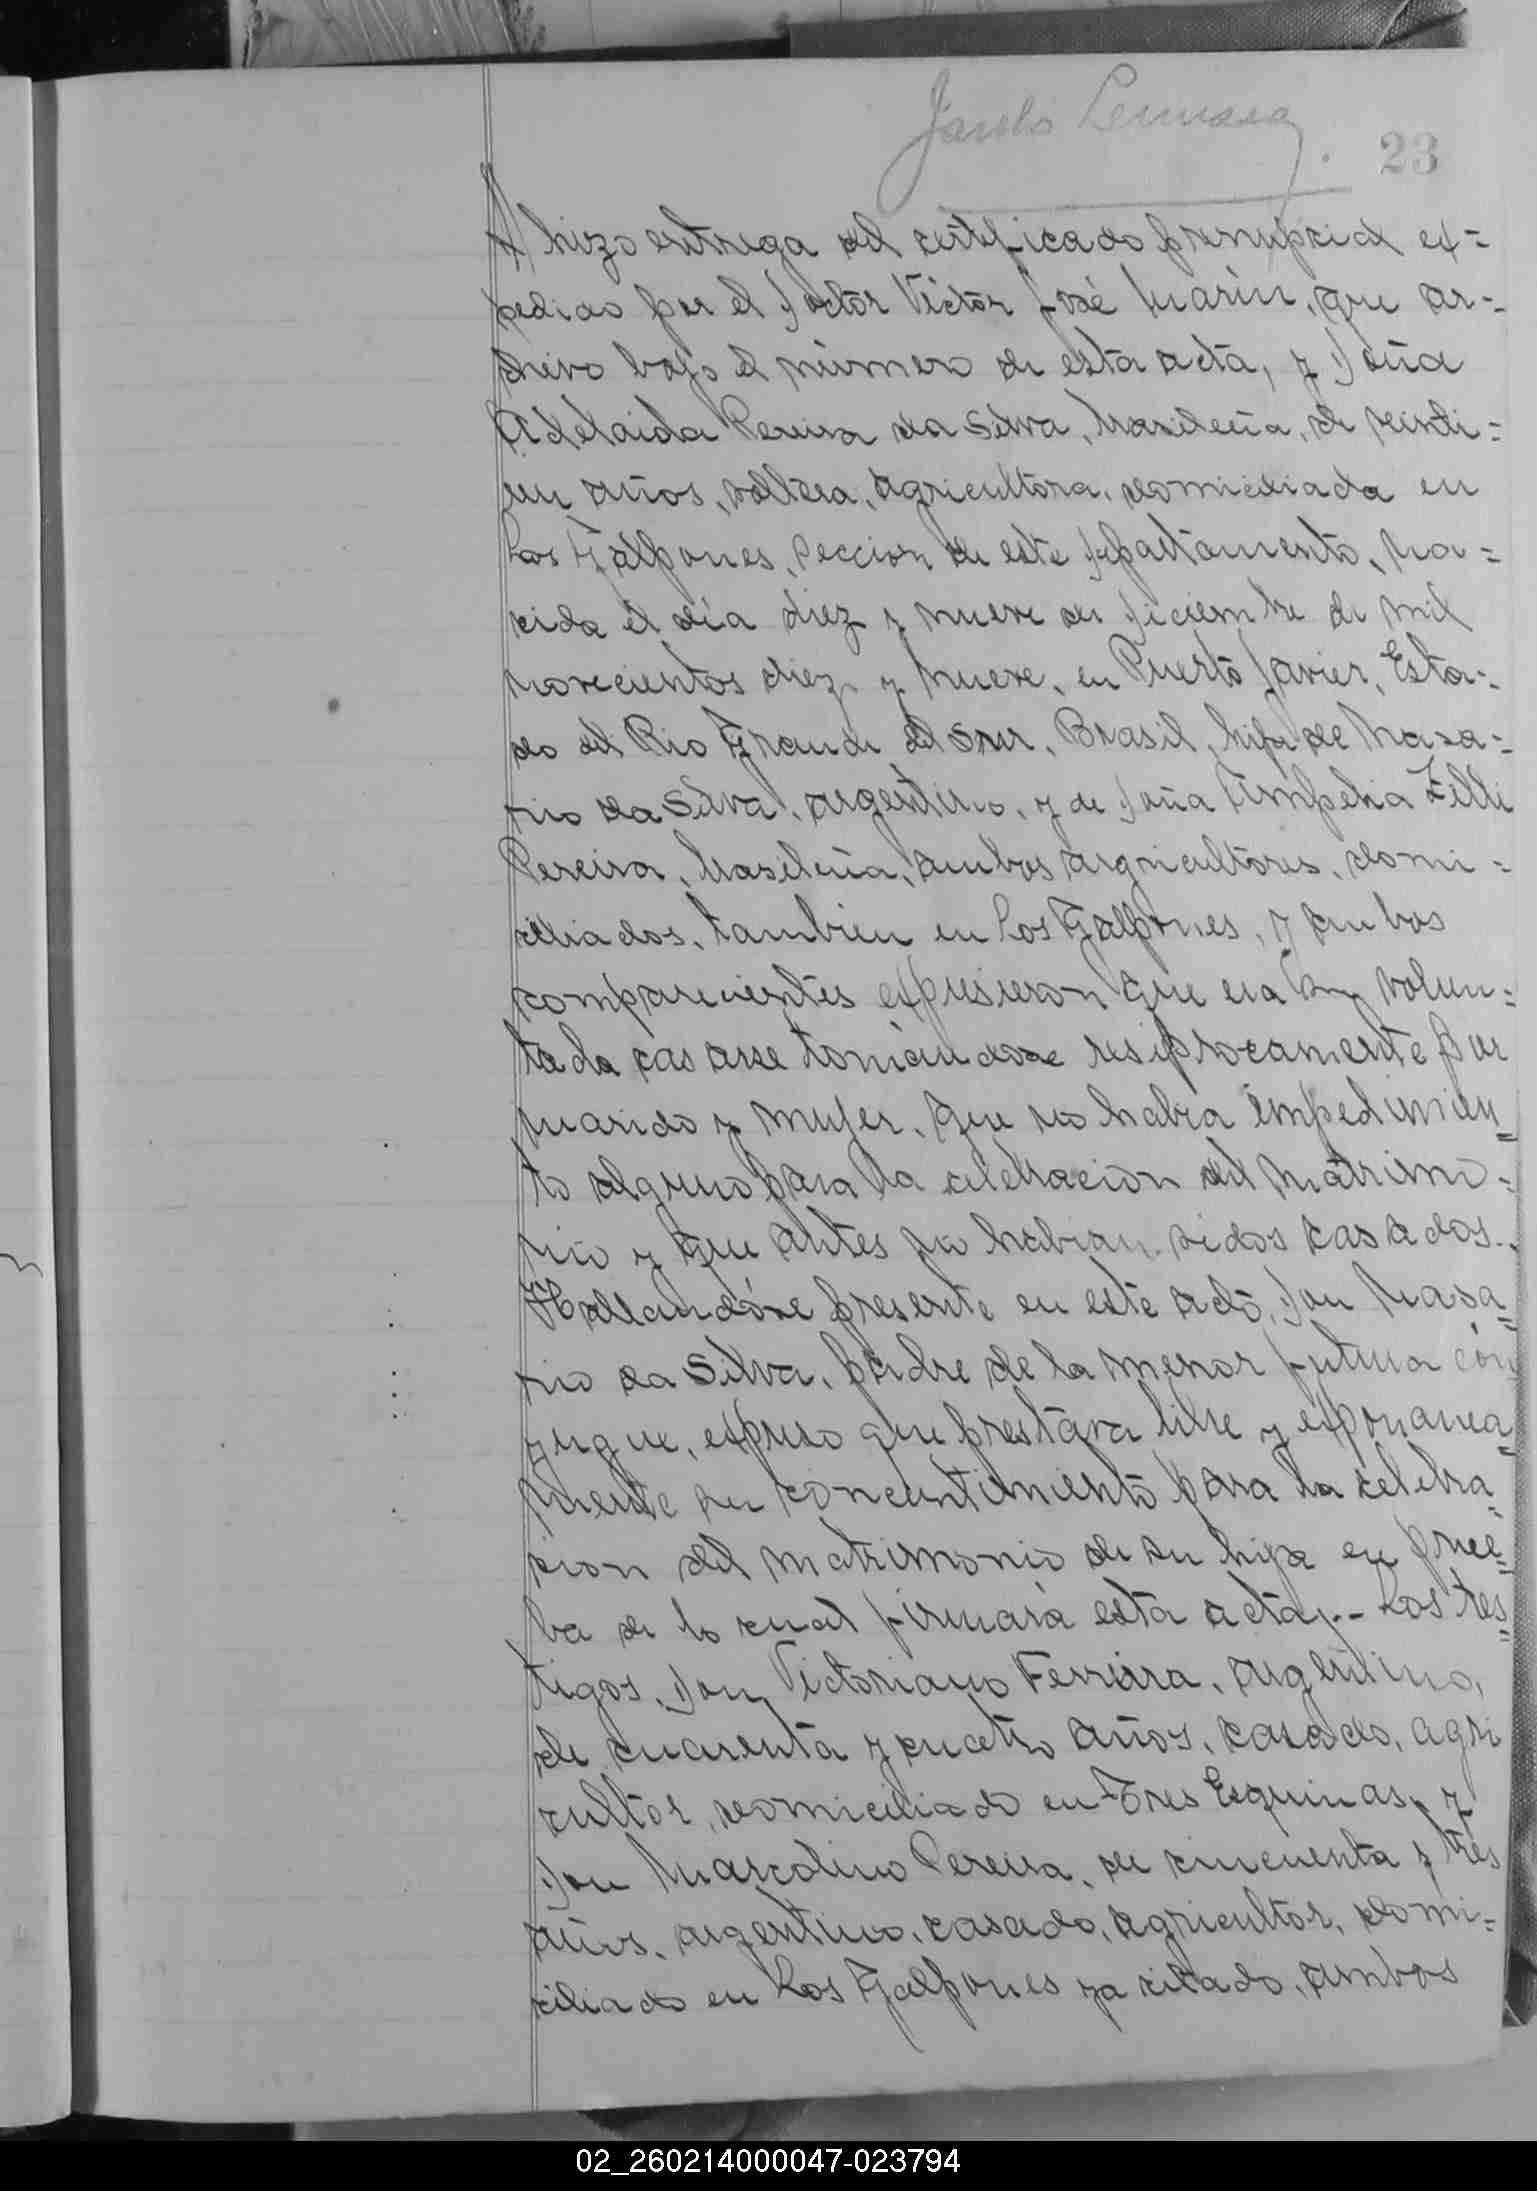 23
A hizo entrega del certificado prenupcial ex=
pedido por el Doctor Victor José Marin, que ar=
chivo bajo el número de esta acta, y Doña
Adelaida Pereira da Silva, brasileña, de veinti=
un años, soltera, agricultora, domiciliada en
Los Galpones, Seccion de este Departamento, na=
cida el día diez y nueve de Diciembre de mil
novecientos diez y nueve, en Puerto Javier, Esta=
do del Rio Grande del Sur, Brasil, hija de Nasa=
rio da Silva, argentino, y de Doña Ampelia Zilli
Pereira, brasileña, ambos agricultores, domi=
ciliados, tambien en Los Galpones, y ambos
comparecientes expusieron que era su volun=
tada casarse tomándose resiprocamente por
marido y mujer, que no habia impedimien=
to alguno para la celebracion del matrimo=
nio y que antes no habian sidos casados.
Hallandóse presente en este acto, Don Nasa=
rio da Silva, padre de la menor futura cón
yugue, expuso que prestava libre y esponanea=
mente su concentimiento para la celebra=
cion del matrimonio de su hija en prue=
ba de lo cual firmará esta acta.- Los tes=
tigos, Don Victoriano Ferreira, argentino,
de cuarenta y cuatro años, casado, agri
cultor, domiciliado en Tres Esquinas, y
Don Marcolino Pereira, de cincuenta y tres
años, argentino, casado, agricultor, domi=
ciliado en Los Galpones ya citado, ambos
02_260214000047-023794